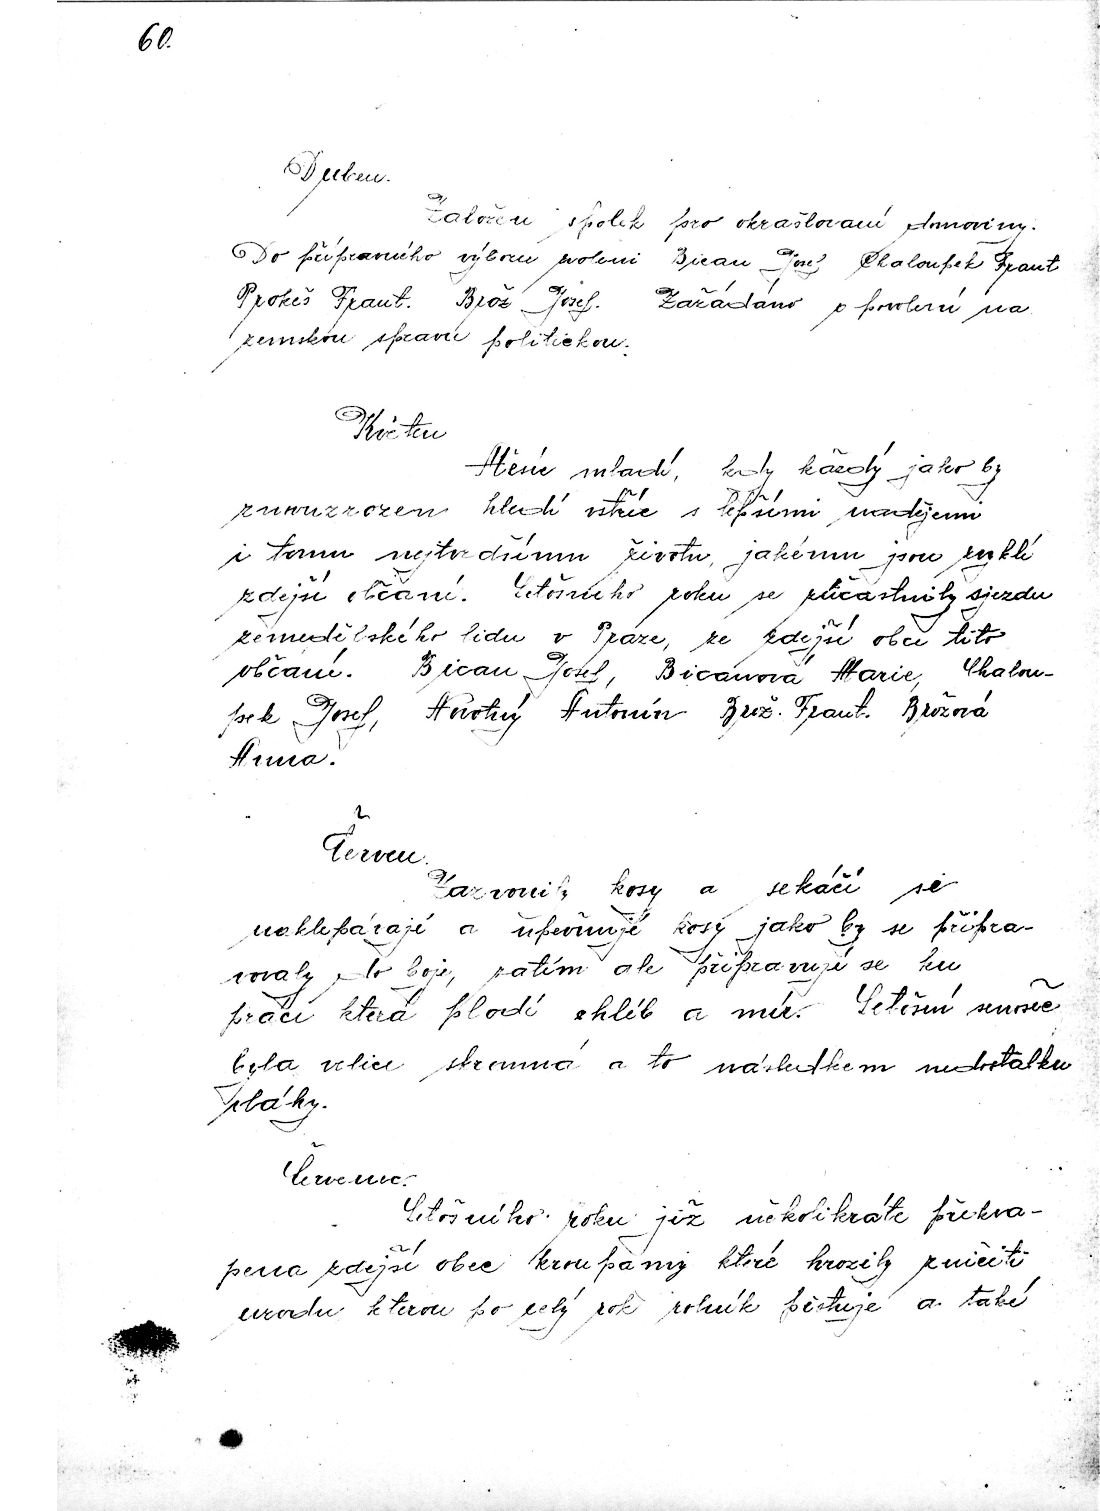 60.
Duben.
Založen spolek pro okrašlovaní domoviny.
Do přípravného výboru zvoleni Bican Josef Chaloupek Frant
Prokeš Frant. Brož Josef. Zažádáno o povolení na
zemskou spravu politickou.
Květen
Měsíc mladí, kdy každý jako by
znovuzrozen hledí vstříc s lepšími nadějemi
i tomu nejtvrdšímu životu, jakému jsou zvyklí
zdejší občané. Letošního roku se zůčastnily sjezdu
zemedělského lidu v Praze, ze zdejší obce tito
občané. Bican Josef, Bicanová Marie, Chalou-
pek Josef, Novotný Antonín Brož. Frant. Brožová
Anna.
Červen.
Zazvonily kosy a sekáčí se
naklepávají a upevňují kosy jako by se přípra-
vovaly do boje, zatím ale připravují se ku
práci která plodí chléb a mír. Letošní senoseč
byla velice skromná a to následkem nedostatku
vláhy.
Červenec.
Letošního roku již několikráte překva-
pena zdejší obec kroupamy které hrozily zničiti
urodu kterou po celý rok rolník pěstuje a také